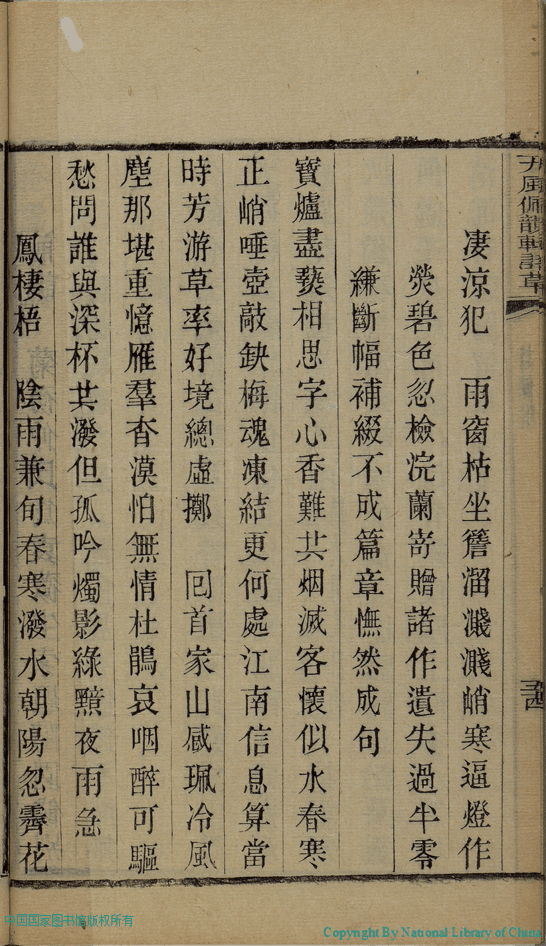 凄涼犯　雨窗枯坐簷溜濺濺峭寒逼燈作
熒碧色忽檢浣蘭寄贈諸作遺失過半零
縑斷幅補綴不成篇章憮然成句
寶爐盡爇相思字心香難共烟滅客懷似水春寒
正峭唾壺敲鈌梅魂凍結更何處江南信息算當
時芳游草率好境總虛擲　囘首家山感珮冷風
塵那堪重憶雁羣杳漠怕無情杜鵑哀咽醉可驅
愁問誰與深杯共潑但孤吟燭影綠黯夜雨急
鳳棲梧　陰雨兼旬春寒潑水朝陽忽霽花
中国国家图书馆版权所有
Copyright By National Library of China